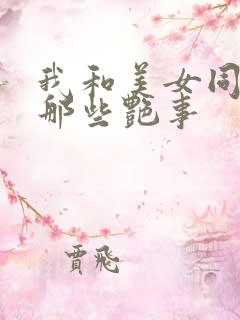 我和美女同
那些艷事
賈飛